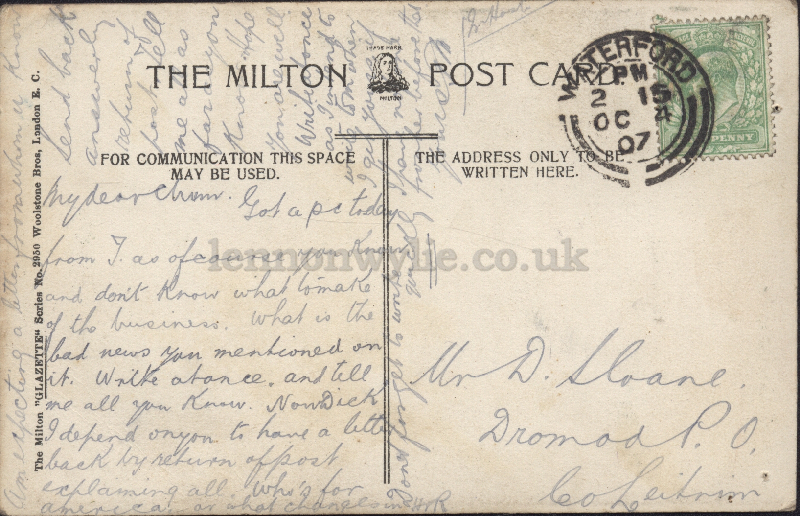 TRADE MARK
MILTON
THE MILTON POST CARD
FOR COMMUNICATION THIS SPACE
MAY BE USED.
THE ADDRESS ONLY TO BE
WRITTEN HERE.
WATERFORD
PM
2 15
OC 4
07
PENNY
My dear Chum. Got a pc today
from J. as of course you know
and don't know what to make
of the business. What is the
bad news you mentioned on
it. Write at once, and tell
me all you know. Now Dick
I depend on you to have a letter
back by return of post
explaining all. Who's for
america, or what changes in
Mr D. Sloane.
Dromod P. O.
Co Leitrim
Send back
answer by
return of
post tell
me as
far as you
know Hope
you are well
Write once
before
Don't forget to write
Am expecting a letter from whom u know
The Milton "GLAZETTE" Series No. 2950 Woolstone Bros, London E. C.
lennonwylie.co.uk